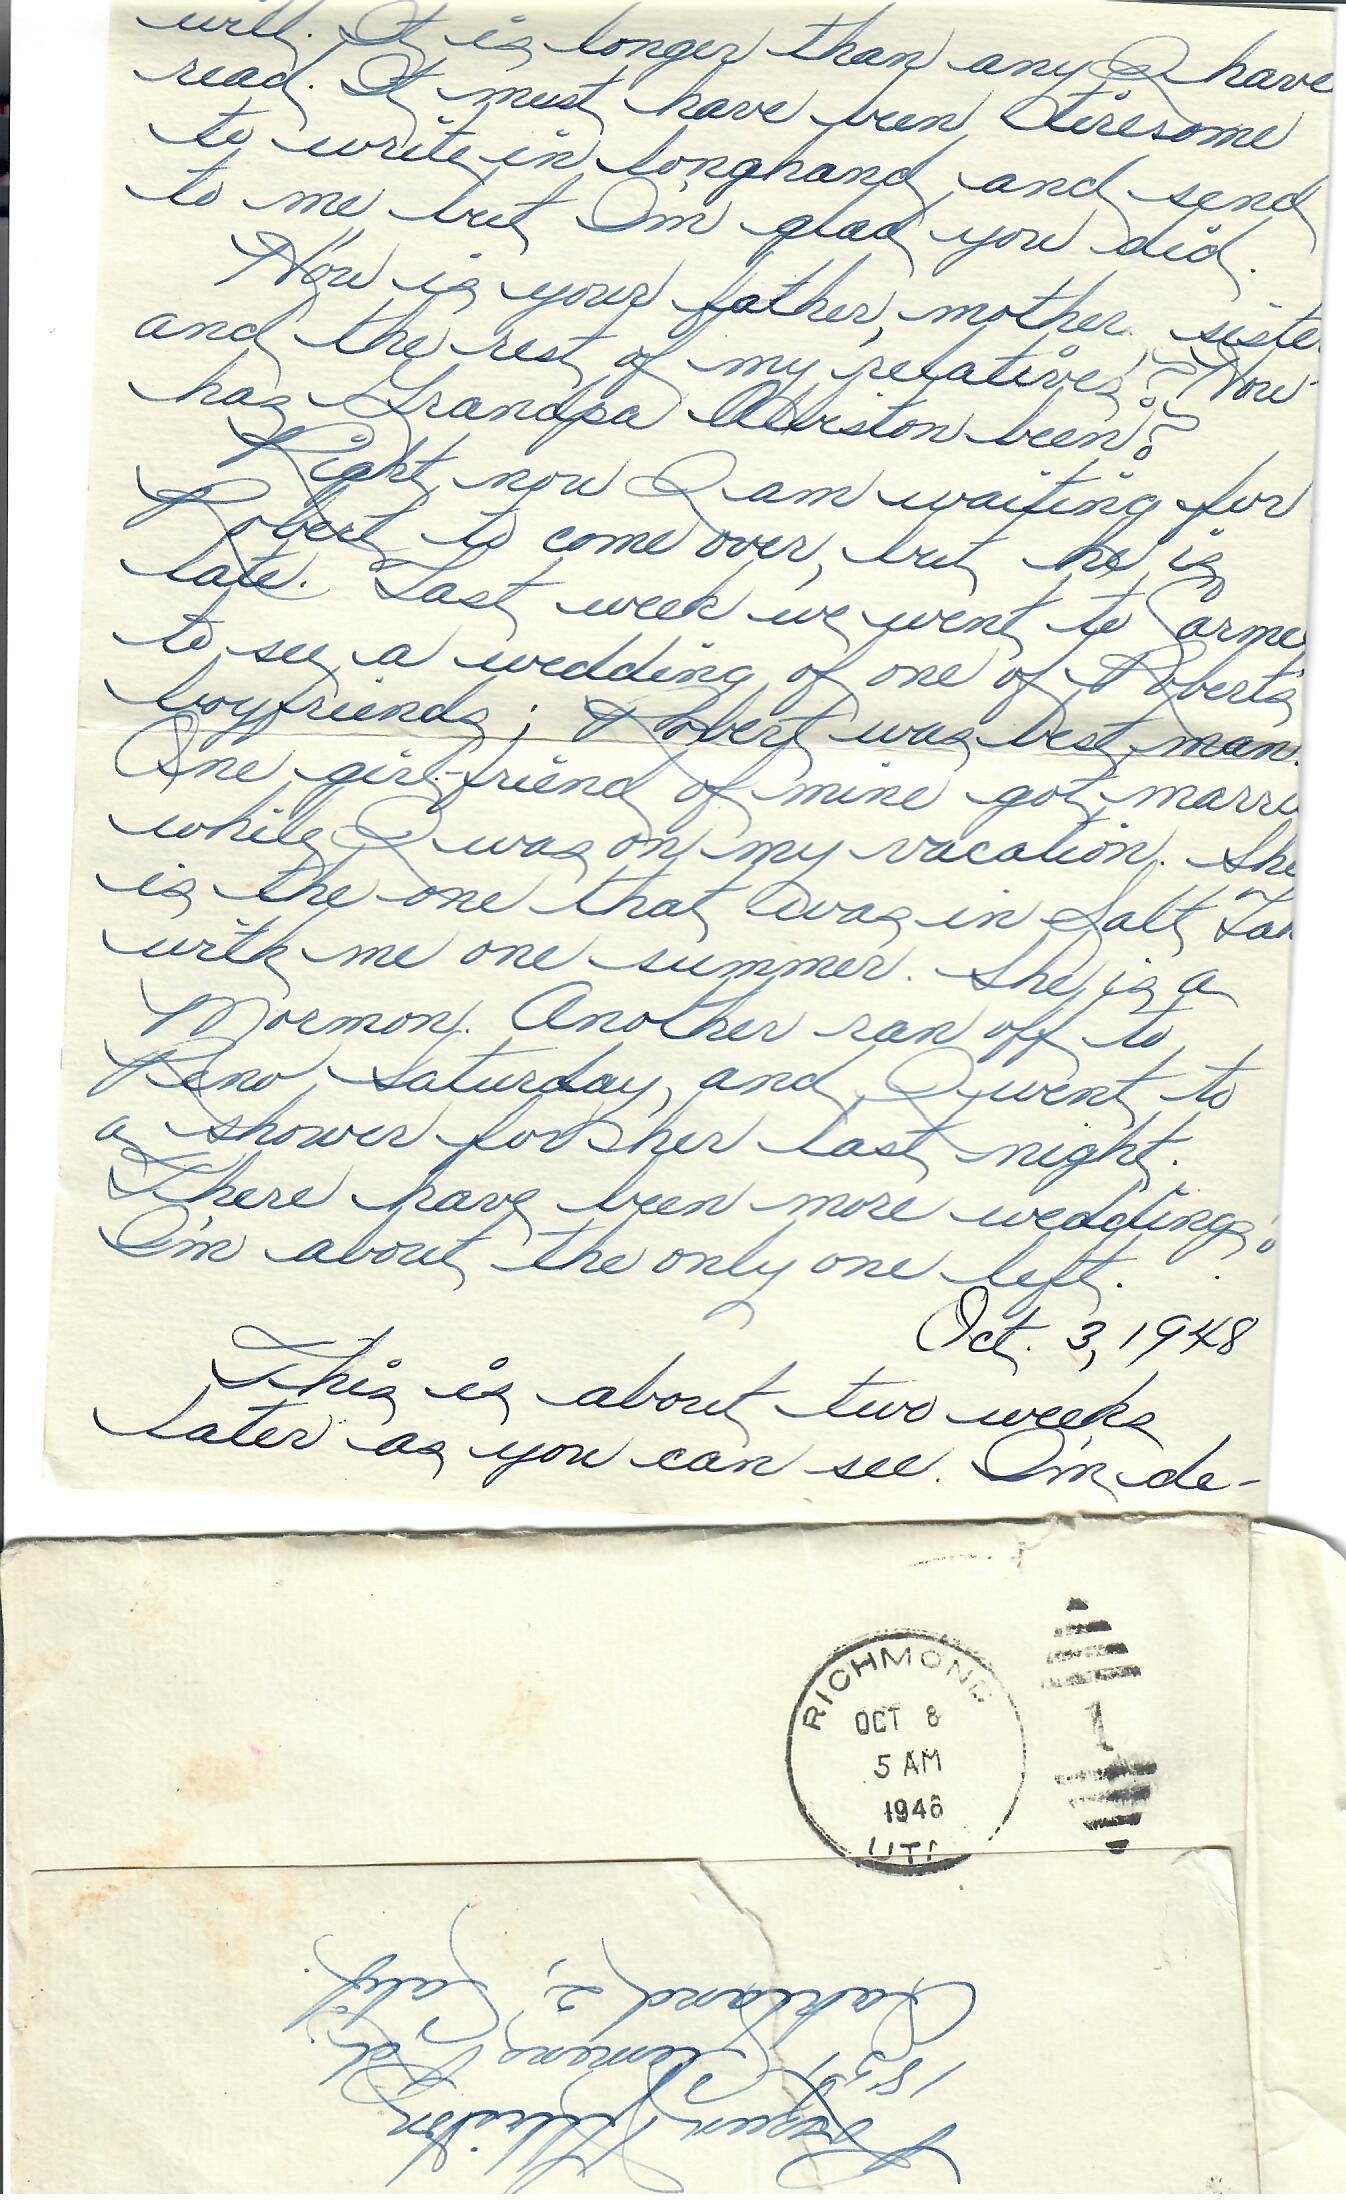 will. It is longer than any I have
read. It must have been tiresome
to write in longhand and send
to me but I'm glad you did.
How is your father, mother, siste
and the rest of my relatives? How
has Grandpa Alviston been?
Right now I am waiting for
Robert to come over, but he is
late. Last week we went to Carmel
to see a wedding of one of Robert's
boyfriends; Robert was best man.
One girl-friend of mine got marri
while I was on my vacation. She
is the one that was in Salt Lak
with me one summer. She is a
Mormon. Another ran off to
Reno Saturday, and I went to
a shower for her last night.
There have been more weddings!
I'm about the only one left.
Oct. 3, 1948
This is about two weeks
later as you can see. I'm de-
RICHMOND
OCT 8
5 AM
1948
UTAH
1
Alviston
Rd.
Oakland 2, Calif.